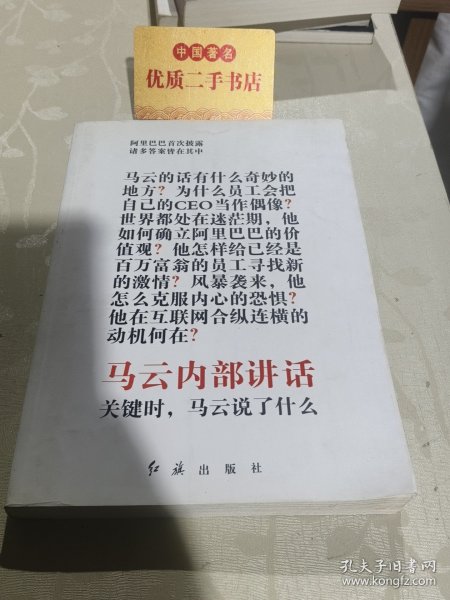 中国著名
优质二手书店
阿里巴巴首次披露
诸多答案皆在其中
马云的话有什么奇妙的
地方？为什么员工会把
自己的CEO当作偶像？
世界都处在迷茫期，他
如何确立阿里巴巴的价
值观？他怎样给已经是
百万富翁的员工寻找新
的激情？风暴袭来，他
怎么克服内心的恐惧？
他在互联网合纵连横的
动机何在？
马云内部讲话
关键时，马云说了什么
红旗出版社
孔夫子旧书网
www.kongfz.com